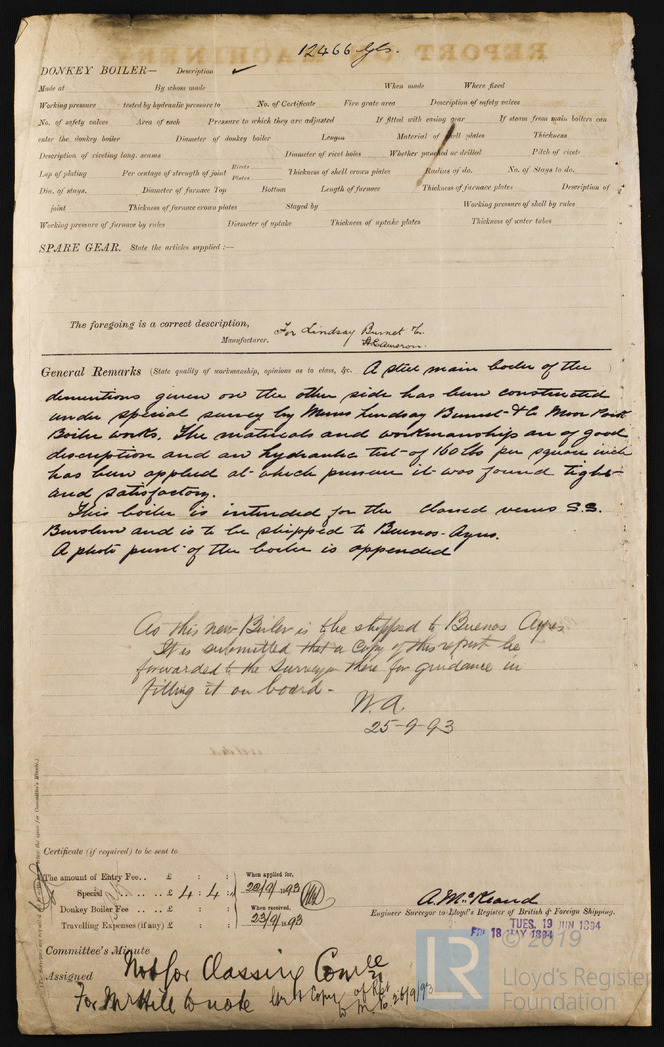 12466 Gls.
REPORT ON MACHINERY
DONKEY BOILER— Description ✓
Made at By whom made When made Where fixed
Working pressure tested by hydraulic pressure to No. of Certificate Fire grate area Description of safety valves
No. of safety valves Area of each Pressure to which they are adjusted If fitted with easing gear If steam from main boilers can
enter the donkey boiler Diameter of donkey boiler Length Material of shell plates Thickness
Description of riveting long. seams Diameter of rivet holes Whether punched or drilled Pitch of rivets
Lap of plating Per centage of strength of joint Rivets Plates Thickness of shell crown plates Radius of do. No. of Stays to do.
Dia. of stays. Diameter of furnace Top Bottom Length of furnace Thickness of furnace plates Description of
joint Thickness of furnace crown plates Stayed by Working pressure of shell by rules
Working pressure of furnace by rules Diameter of uptake Thickness of uptake plates Thickness of water tubes
SPARE GEAR. State the articles supplied:—
The foregoing is a correct description,
For Lindsay Burnet & Co.
Manufacturer. Cameron.
General Remarks (State quality of workmanship, opinions as to class, &c. A steel main boiler of the
dimentions given on the other side has been constructed
under special survey by Messrs Lindsay Burnet & Co Moor Park
Boiler works. The materials and workmanship are of good
description and an hydraulic test of 160 lbs per square inch
has been applied at which pressure it was found tight
and satisfactory.
This boiler is intended for the classed SS.
and is to be shipped to Buenos-Ayres.
A photo print of the boiler is appended
As this new Boiler is to be shipped to Buenos Ayres
It is submitted that a copy of this report be
forwarded to the Surveyor there for guidance in
fitting it on board -
W.A.
25-9-93
Certificate (if required) to be sent to
The amount of Entry Fee.. £ : :
Special .. £ 4 : 4 :
Donkey Boiler Fee £ : :
Travelling Expenses (if any) £ : :
When applied for,
22/9/1893
When received,
23/9/1893
A. McKeand
Engineer Surveyor to Lloyd's Register of British & Foreign Shipping.
TUES. 19 JUN 1894
FRI. 18 MAY 1894
Committee's Minute
Assigned
Not for Classing Comee
For Mr Hill to note
Copy of Rpt
26/9/93
© 2019
LR
Lloyd's Register
Foundation